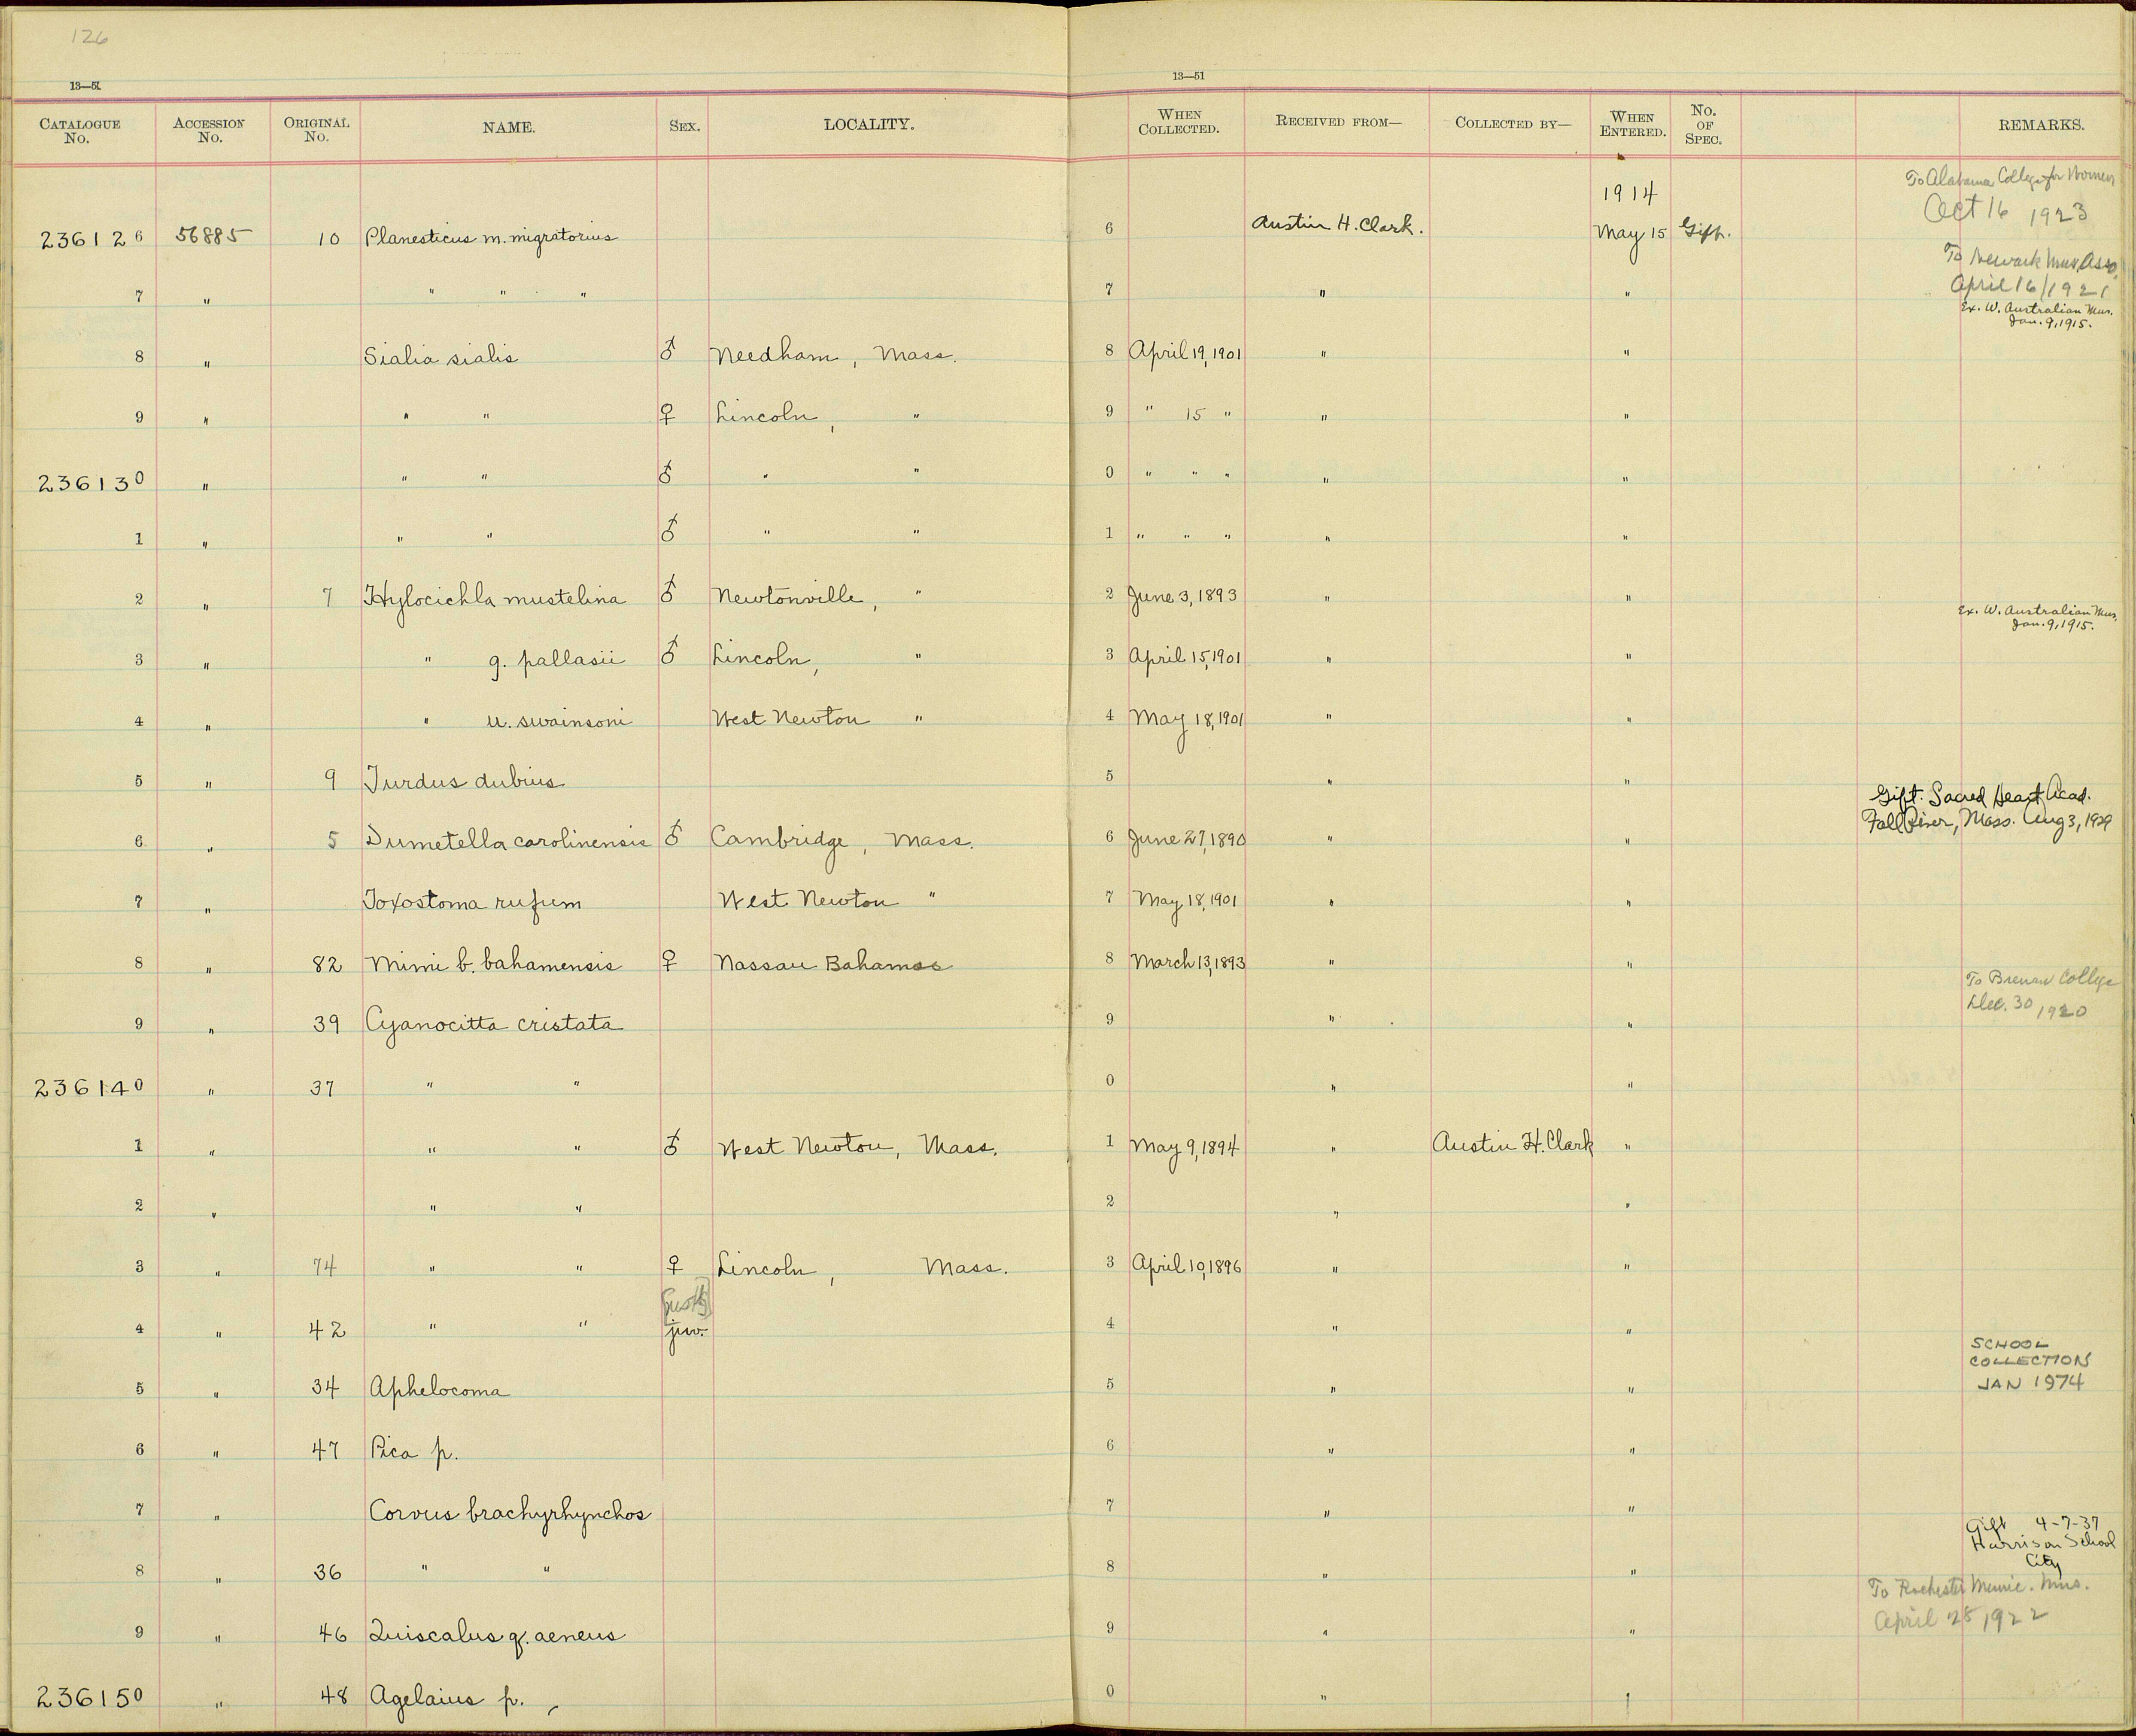 126
13—51
13—51
CATALOGUE No. ACCESSION No. ORIGINAL No. NAME. SEX. LOCALITY. WHEN COLLECTED. RECEIVED FROM— COLLECTED BY— WHEN ENTERED. No. OF SPEC. REMARKS.
To Alabama College for Women
Oct 16 1923
1914
236126 56885 10 Planesticus m. migratorius 6 Austin H. Clark. May 15 Gift.
To Newark Mus. Asso.
April 16/1921
7 " " " " 7 " "
Ex. W. Australian Mus.
Jan. 9, 1915.
8 " Sialia sialis ♂ Needham, Mass. 8 April 19, 1901 " "
9 " " " ♀ Lincoln, " 9 " 15 " " "
236130 " " " ♂ " " 0 " " " " "
1 " " " ♂ " " 1 " " " " "
2 " 7 Hylocichla mustelina ♂ Newtonville, " 2 June 3, 1893 " "
Ex. W. Australian Mus.
Jan. 9, 1915.
3 " " g. pallasii ♂ Lincoln, " 3 April 15, 1901 " "
4 " " u. swainsoni West Newton " 4 May 18, 1901 " "
5 " 9 Turdus dubius 5 " "
Gift. Sacred Heart Acad.
Fall River, Mass. Aug 3, 1929
6 " 5 Dumetella carolinensis ♂ Cambridge, Mass. 6 June 27, 1890 " "
7 " Toxostoma rufum West Newton " 7 May 18, 1901 " "
8 " 82 Mimi b. bahamensis ♀ Nassau Bahamas 8 March 13, 1893 " "
To Brenau College
Dec. 30 1920
9 " 39 Cyanocitta cristata 9 " "
236140 " 37 " " 0 " "
1 " " " ♂ West Newton, Mass. 1 May 9, 1894 " Austin H. Clark "
2 " " " 2 " "
3 " 74 " " ♀ Lincoln, Mass. 3 April 10, 1896 " "
4 " 42 " " juv. 4 " "
SCHOOL
COLLECTION
JAN 1974
5 " 34 Aphelocoma 5 " "
6 " 47 Pica p. 6 " "
7 " Corvus brachyrhynchos 7 " "
Gift 4-7-37
Harrison School
City
8 " 36 " " 8 " "
To Rochester Munic. Mus.
April 28 1922
9 " 46 Quiscalus q. aeneus 9 " "
236150 " 48 Agelaius p. 0 " "